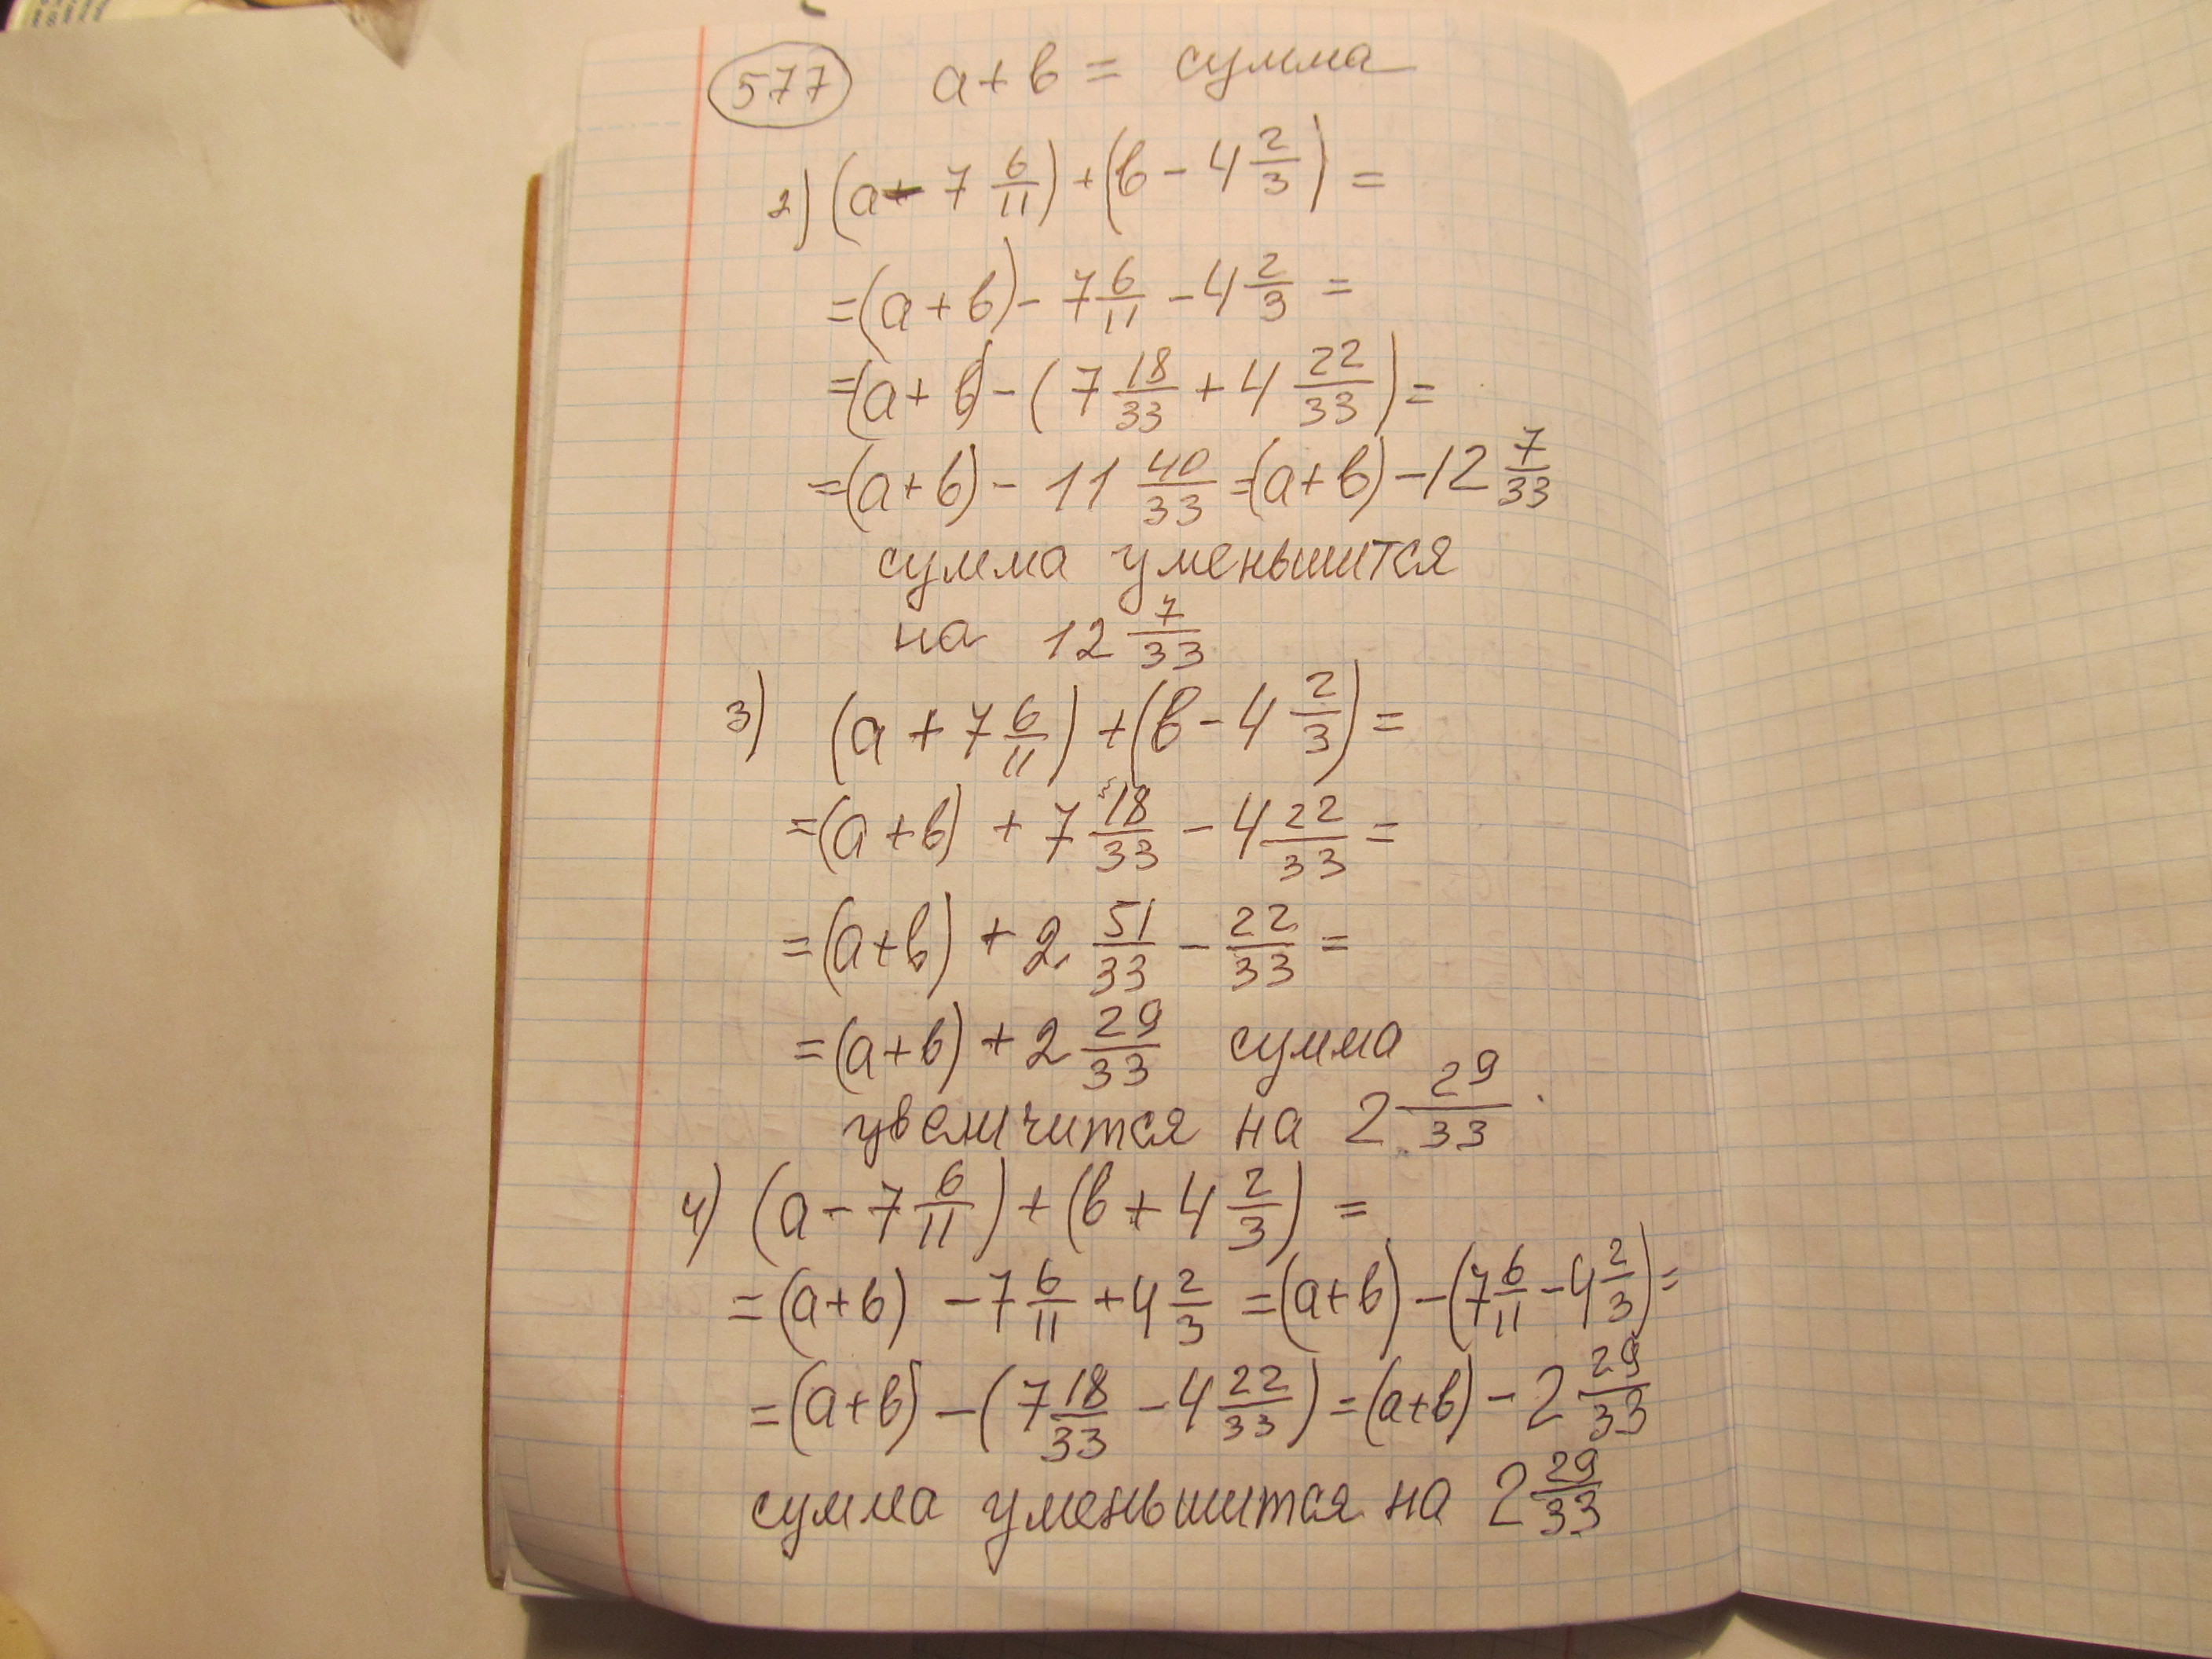 577 a + b = сумма
2) (a - 7 6/11) + (b - 4 2/3) =
= (a + b) - 7 6/11 - 4 2/3 =
= (a + b) - (7 18/33 + 4 22/33) =
= (a + b) - 11 40/33 = (a + b) - 12 7/33
сумма уменьшится
на 12 7/33
3) (a + 7 6/11) + (b - 4 2/3) =
= (a + b) + 7 18/33 - 4 22/33 =
= (a + b) + 2 51/33 - 22/33 =
= (a + b) + 2 29/33 сумма
увеличится на 2 29/33.
4) (a - 7 6/11) + (b + 4 2/3) =
= (a + b) - 7 6/11 + 4 2/3 = (a + b) - (7 6/11 - 4 2/3) =
= (a + b) - (7 18/33 - 4 22/33) = (a + b) - 2 29/33
сумма уменьшится на 2 29/33